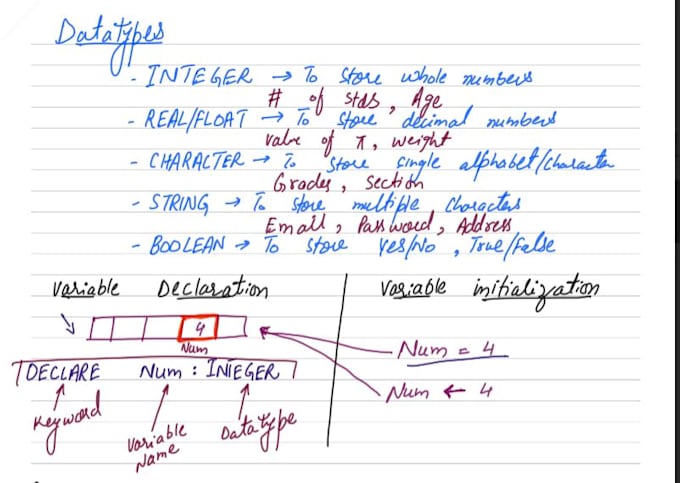 Datatypes
- INTEGER → To store whole numbers
# of stds, Age
- REAL/FLOAT → To store decimal numbers
value of π, weight
- CHARACTER → To store single alphabet/character
Grades, Section
- STRING → To store multiple characters
Email, Password, Address
- BOOLEAN → To store Yes/No, True/False
Variable Declaration
4
Num
DECLARE Num : INTEGER
Keyword
Variable Name
Datatype
Variable initialization
Num = 4
Num ← 4